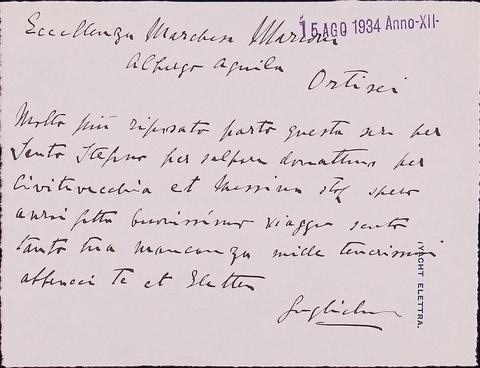 Eccellenza Marchesa Marconi
15 AGO 1934 Anno-XII-
Albergo Aquila
Ortisei
Molto più riposato parto questa sera per
Santo Stefano per salpare domattina per
Civitavecchia et Messina stop spero
buonissimo viaggio sento
tanto tua mancanza mille tenerissimi
abbracci te et Elettra
Guglielmo
YACHT ELETTRA.